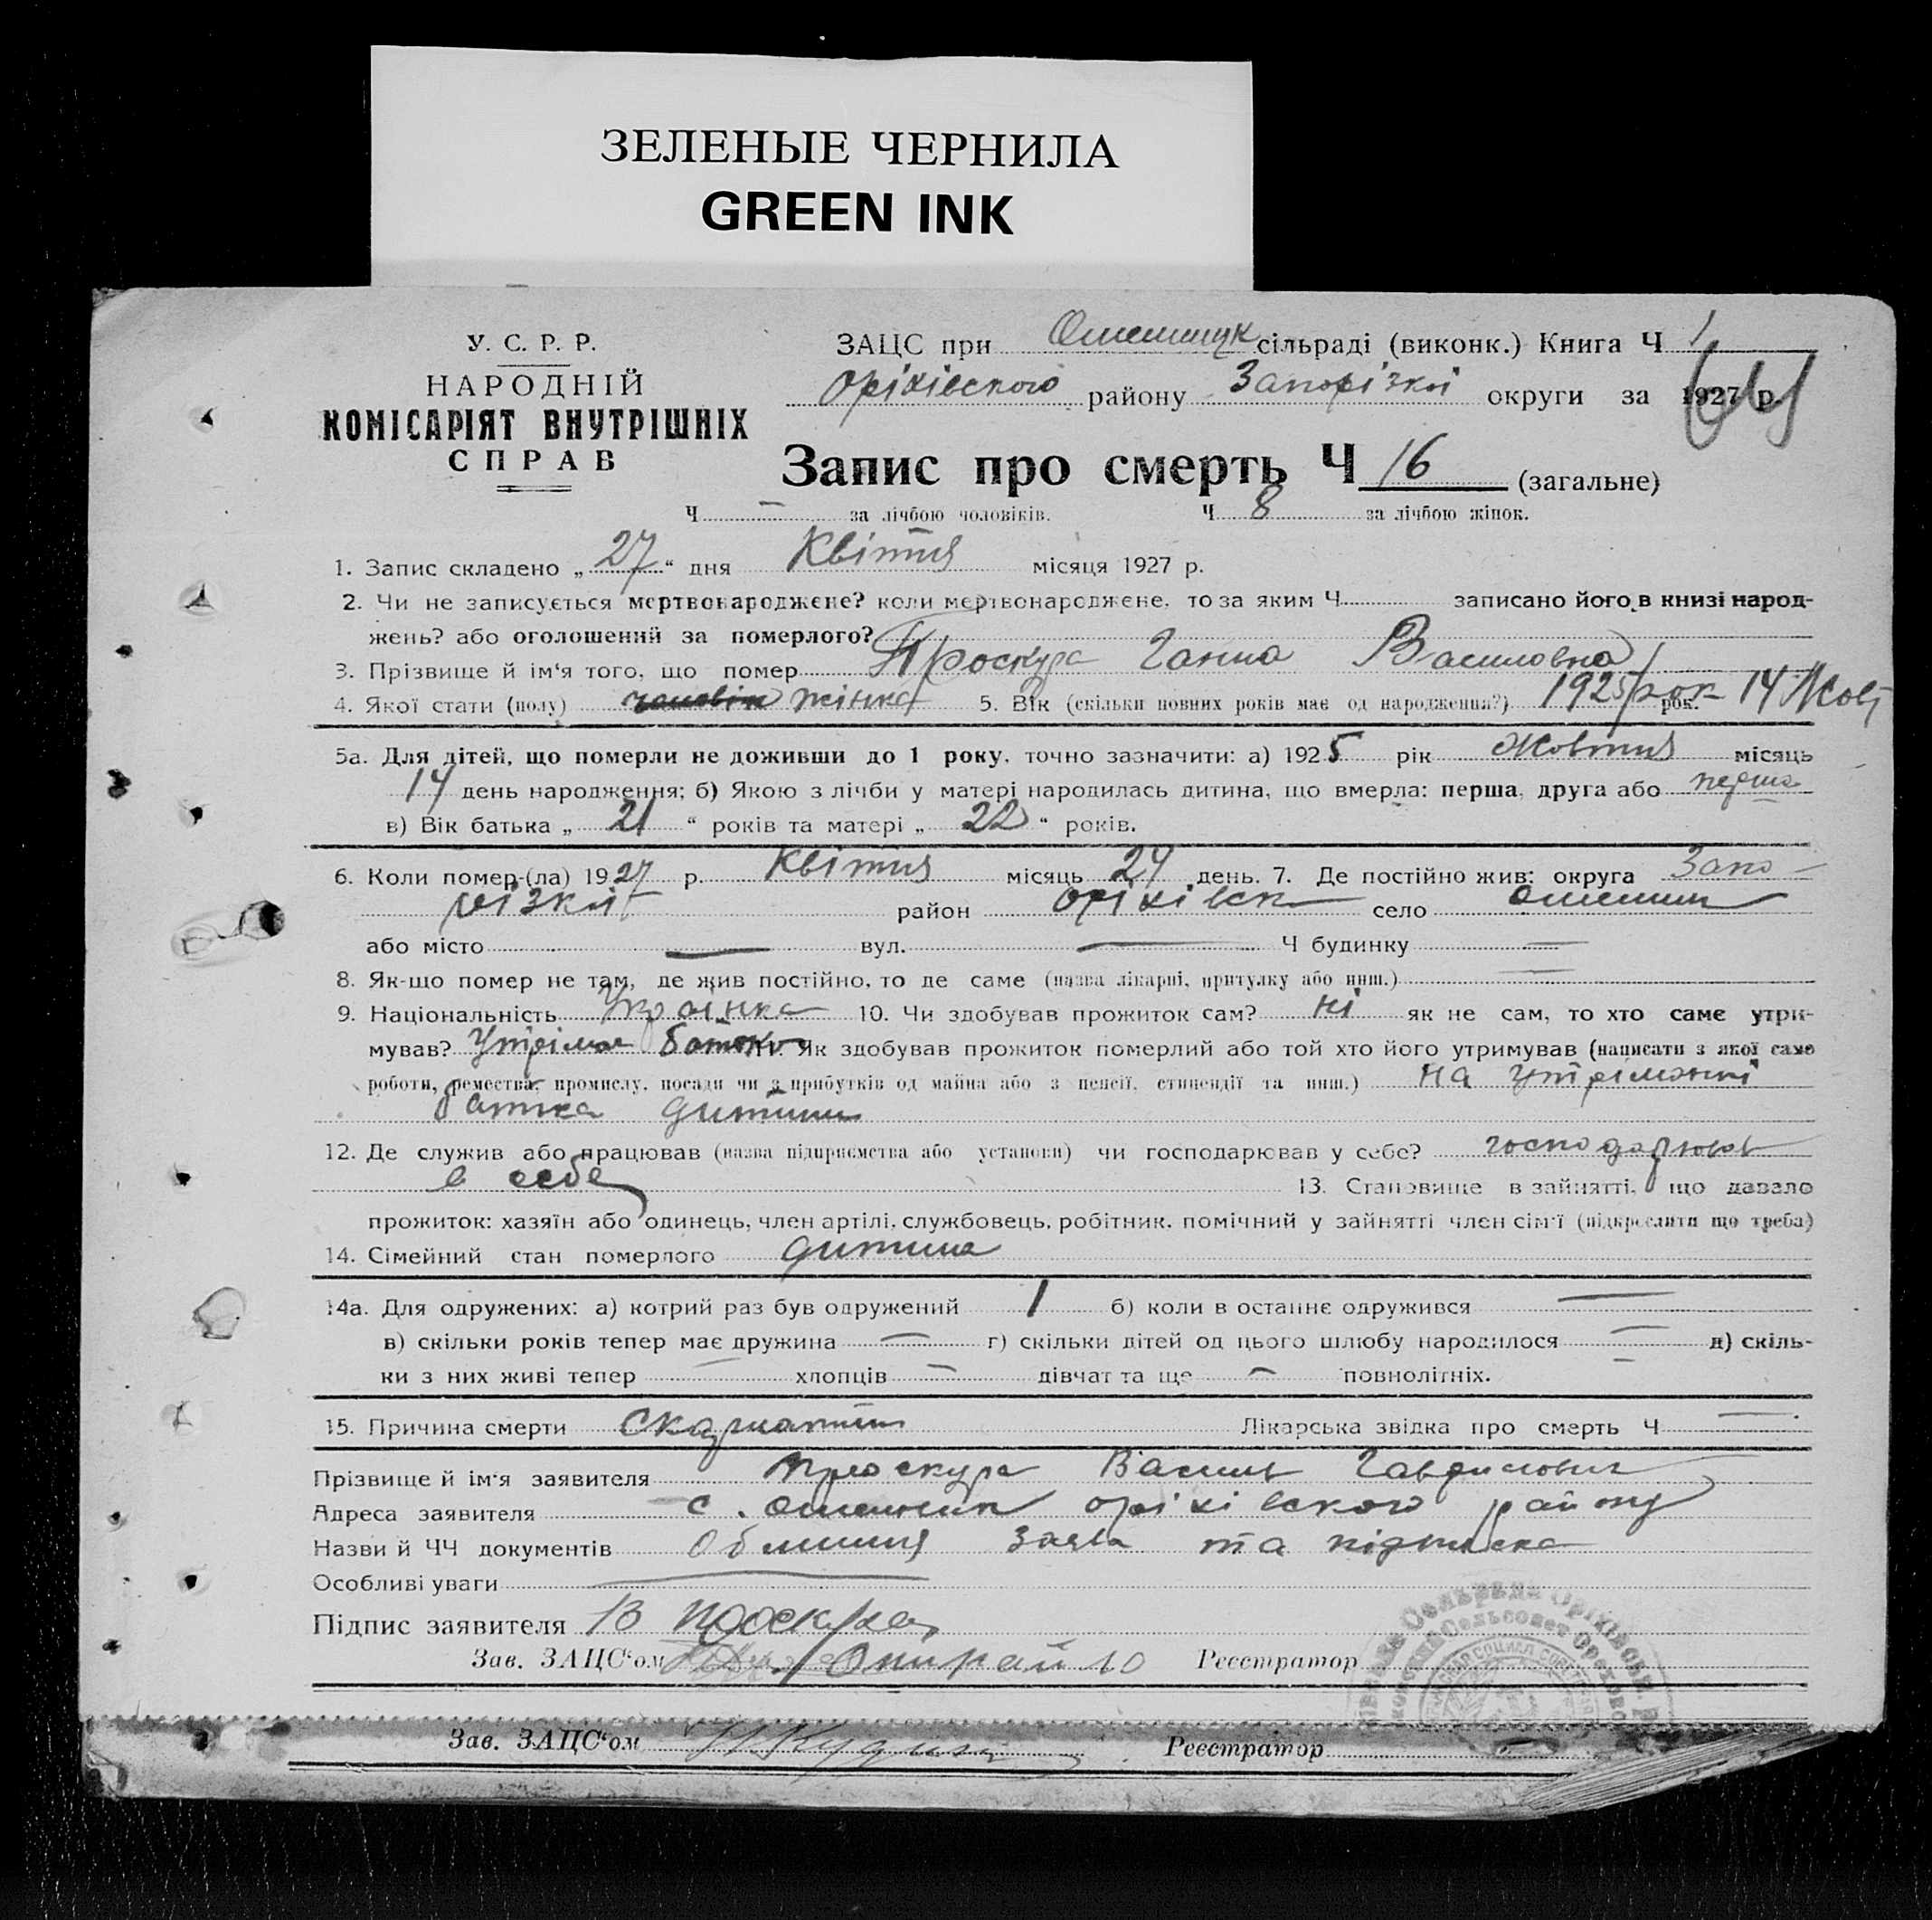 ЗЕЛЕНЫЕ ЧЕРНИЛА
GREEN INK
У. С. Р. Р.
НАРОДНІЙ
КОМІСАРІЯТ ВНУТРІШНІХ
СПРАВ
ЗАЦС при сільраді (виконк.) Книга Ч 1
Оріхівського району Запорізкої округи за 1927 р.
Запис про смерть Ч 16 (загальне)
Ч — за лічбою чоловіків. Ч 8 за лічбою жінок.
1. Запис складено „27“ дня Квітня місяця 1927 р.
2. Чи не записується мертвонароджене? коли мертвонароджене, то за яким Ч записано його в книзі народ-
жень? або оголошений за померлого?
3. Прізвище й ім'я того, що помер Проскура Ганна Василовна
4. Якої стати (полу) жінка 5. Вік (скільки повних років має од народження?) 1925 рок рок. 14 Жовт
5а. Для дітей, що померли не доживши до 1 року, точно зазначити: а) 1925 рік Жовтня місяць
14 день народження; б) Якою з лічби у матері народилась дитина, що вмерла: перша, друга або перша
в) Вік батька „21“ років та матері „22“ років.
6. Коли помер-(ла) 1927 р. Квітня місяць 24 день. 7. Де постійно жив: округа Запо-
різкої район Оріхівськ село
або місто — вул. — Ч будинку —
8. Як-що помер не там, де жив постійно, то де саме (назва лікарні, притулку або инш.) —
9. Національність Українка 10. Чи здобував прожиток сам? ні як не сам, то хто саме утри-
мував? Утрімав батько 11. Як здобував прожиток померлий або той хто його утримував (написати з якої саме
роботи, ремества, промислу, посади чи з прибутків од майна або з пенсії, стипендії та инш.) на утріманні
батка дитина
12. Де служив або працював (назва підприємства або установи) чи господарював у себе? господарював
в себе 13. Становище в зайнятті, що давало
прожиток: хазяїн або одинець, член артілі, службовець, робітник, помічний у зайнятті член сім'ї (підкреслити що треба)
14. Сімейний стан померлого дитина
14а. Для одружених: а) котрий раз був одружений 1 б) коли в останнє одружився —
в) скільки років тепер має дружина — г) скільки дітей од цього шлюбу народилося — д) скіль-
ки з них живі тепер — хлопців — дівчат та ще — повнолітніх.
15. Причина смерти Скарлатин Лікарська звідка про смерть Ч —
Прізвище й ім'я заявителя Проскура Василь Гаврилович
Адреса заявителя с. Оріхівского району
Назви й ЧЧ документів заява та підписка
Особливі уваги —
Підпис заявителя В Проскура
Зав. ЗАЦС'ом Реєстратор
Зав. ЗАЦС'ом Реєстратор